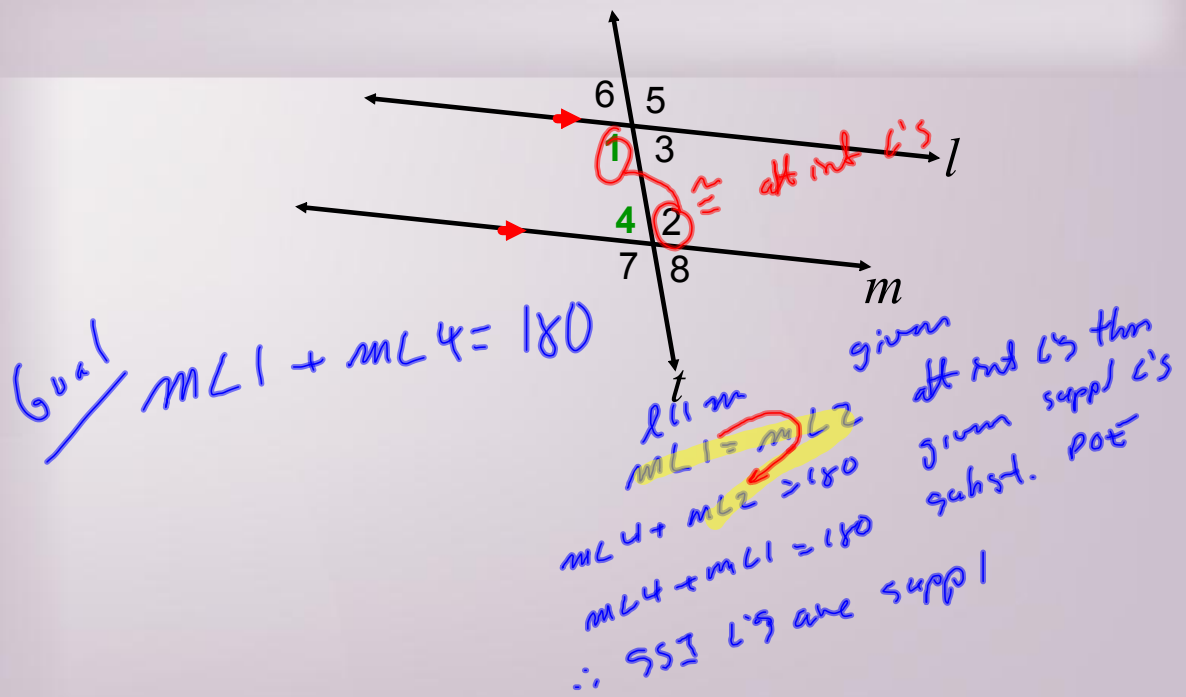 6 5
1 3
l
≅ alt int ∠'s
4 2
7 8
m
t
Goal
m∠1 + m∠4 = 180
l || m given
m∠1 = m∠2 alt int ∠'s thm
m∠4 + m∠2 = 180 given suppl ∠'s
m∠4 + m∠1 = 180 subst. POE
∴ SSI ∠'s are suppl